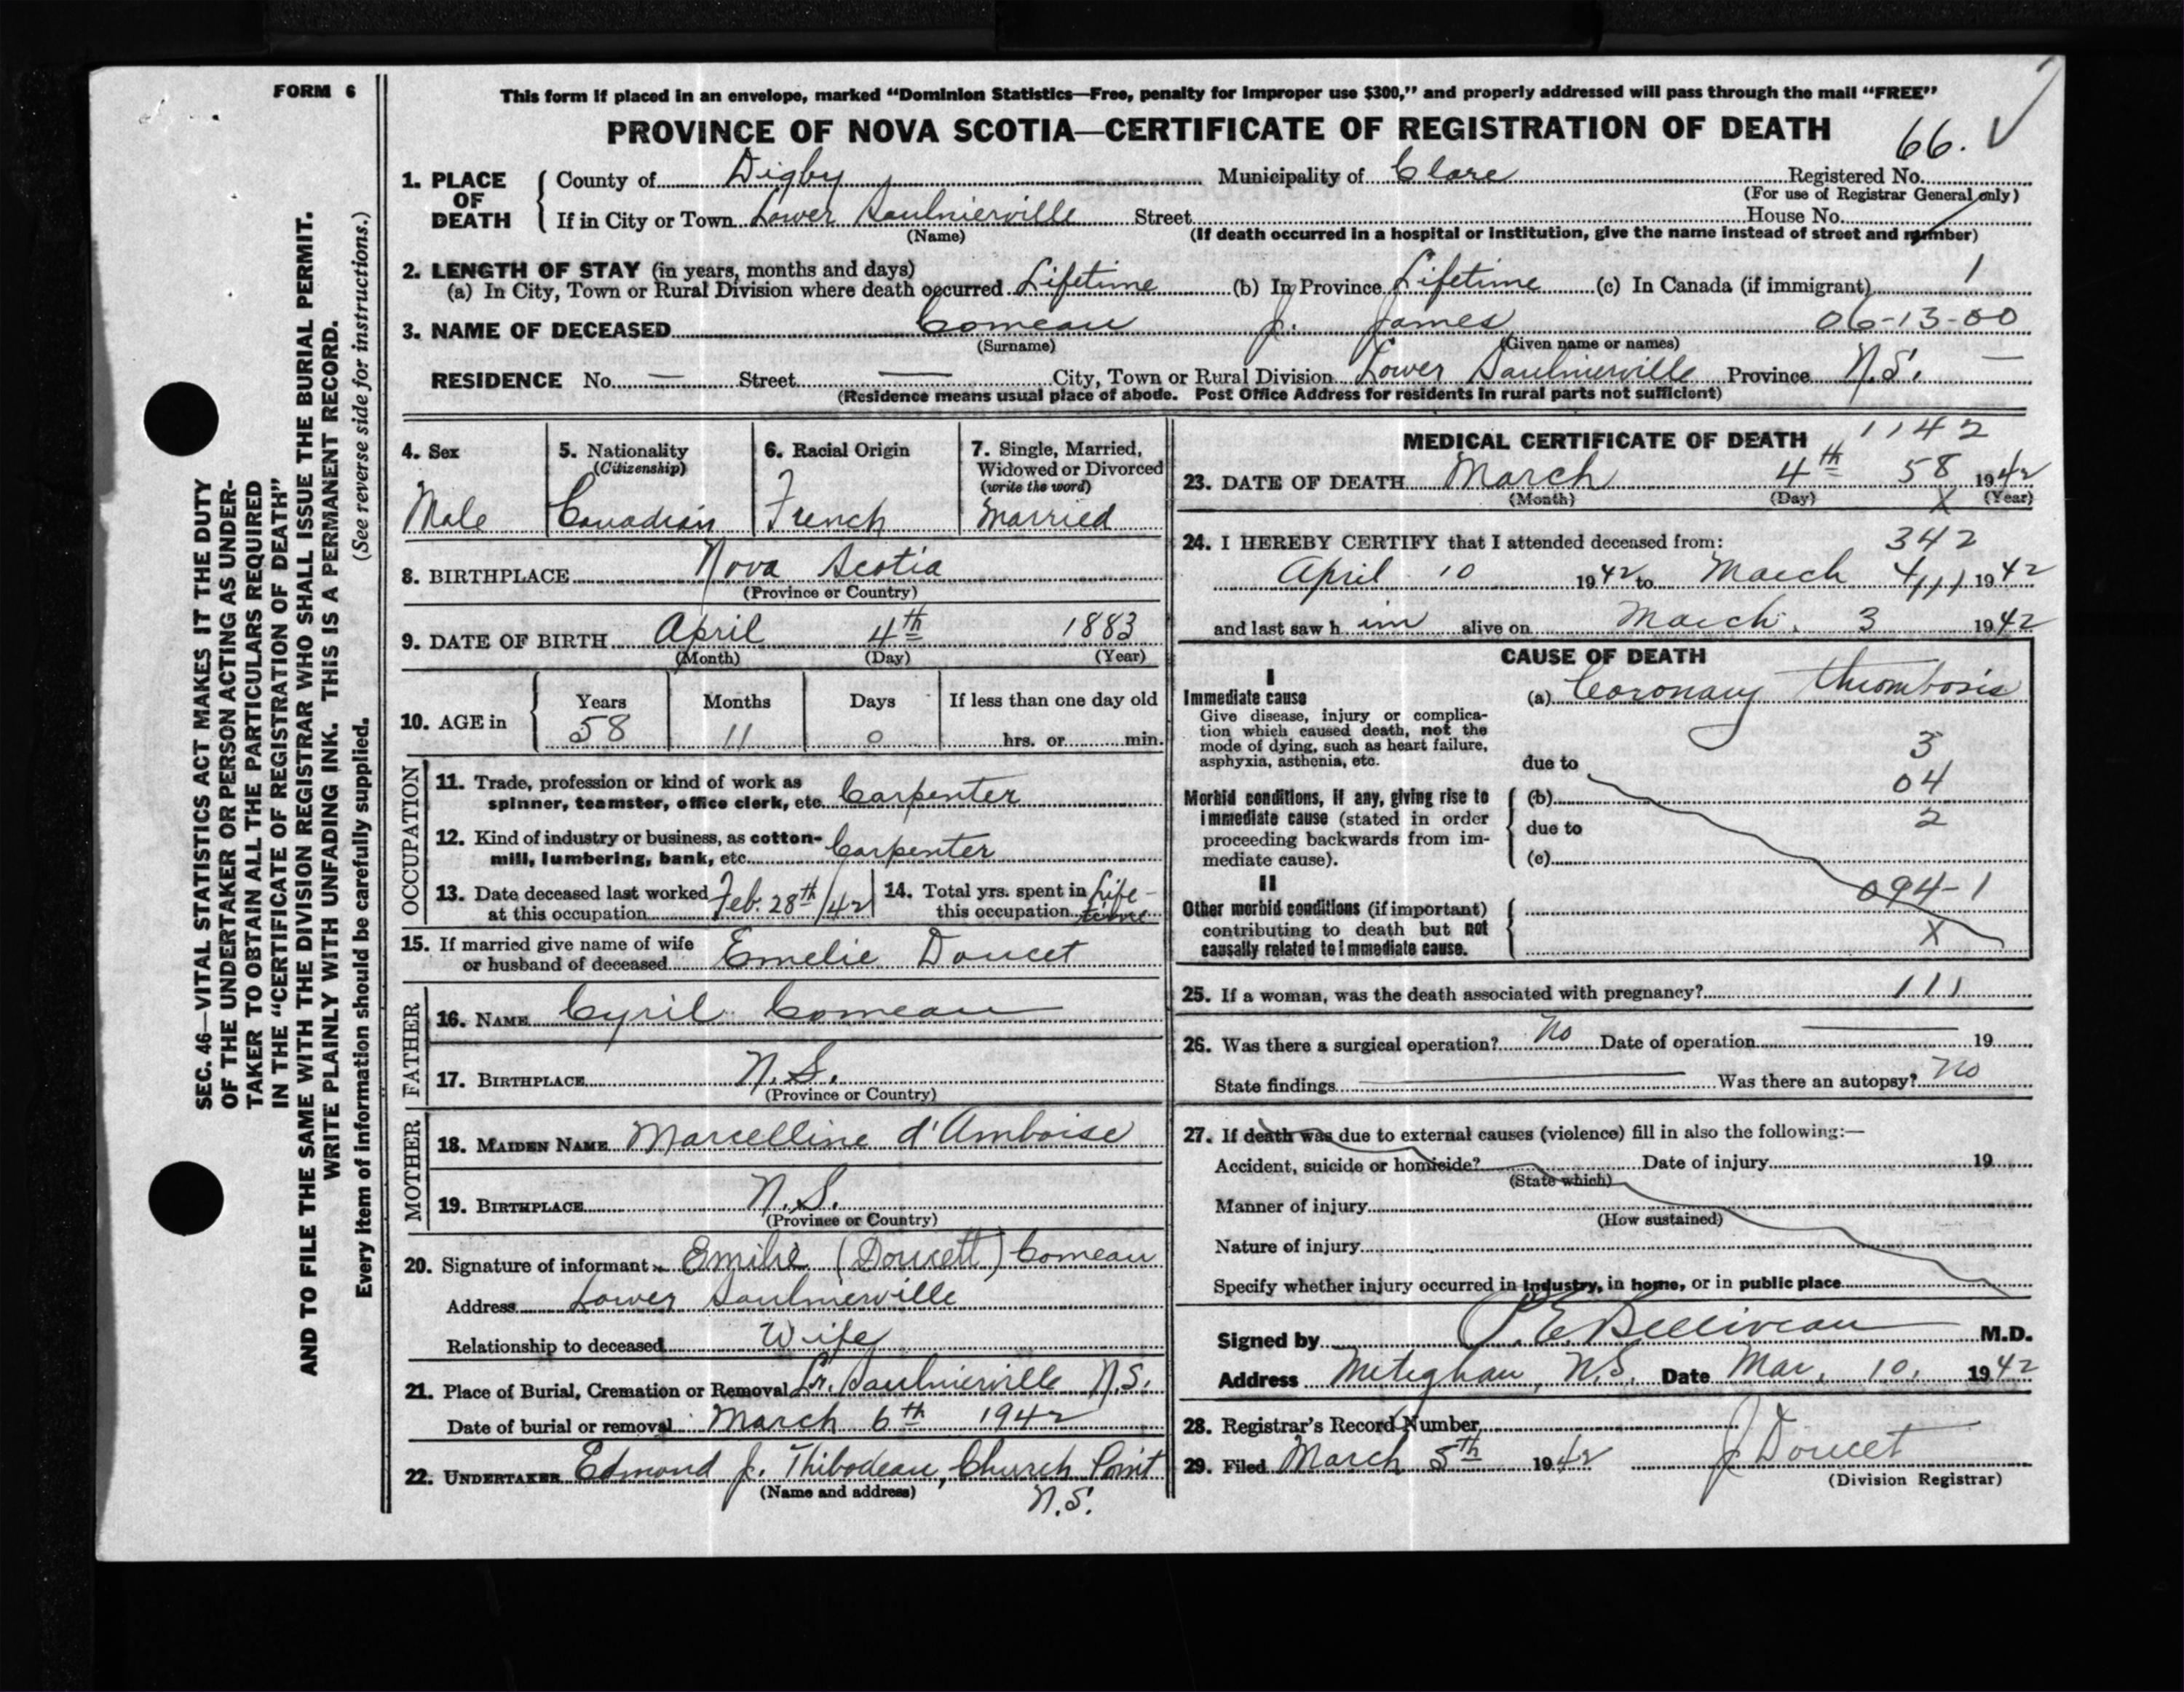 FORM 6
SEC. 46—VITAL STATISTICS ACT MAKES IT THE DUTY
OF THE UNDERTAKER OR PERSON ACTING AS UNDER-
TAKER TO OBTAIN ALL THE PARTICULARS REQUIRED
IN THE "CERTIFICATE OF REGISTRATION OF DEATH"
AND TO FILE THE SAME WITH THE DIVISION REGISTRAR WHO SHALL ISSUE THE BURIAL PERMIT.
WRITE PLAINLY WITH UNFADING INK. THIS IS A PERMANENT RECORD.
Every item of information should be carefully supplied. (See reverse side for instructions.)
This form if placed in an envelope, marked "Dominion Statistics—Free, penalty for improper use $300," and properly addressed will pass through the mail "FREE"
PROVINCE OF NOVA SCOTIA—CERTIFICATE OF REGISTRATION OF DEATH
66.
1. PLACE OF DEATH County of Digby Municipality of Clare Registered No.
(For use of Registrar General only)
If in City or Town Lower Saulnierville Street House No.
(Name) (If death occurred in a hospital or institution, give the name instead of street and number)
2. LENGTH OF STAY (in years, months and days)
(a) In City, Town or Rural Division where death occurred Lifetime (b) In Province Lifetime (c) In Canada (if immigrant) 1
3. NAME OF DECEASED Comeau J. James 06-13-00
(Surname) (Given name or names)
RESIDENCE No. — Street — City, Town or Rural Division Lower Saulnierville Province N.S. —
(Residence means usual place of abode. Post Office Address for residents in rural parts not sufficient)
4. Sex 5. Nationality 6. Racial Origin 7. Single, Married,
(Citizenship) Widowed or Divorced
(write the word)
Male Canadian French Married
8. BIRTHPLACE Nova Scotia
(Province or Country)
9. DATE OF BIRTH April 4th 1883
(Month) (Day) (Year)
10. AGE in Years Months Days If less than one day old
58 11 0 hrs. or min.
OCCUPATION
11. Trade, profession or kind of work as
spinner, teamster, office clerk, etc. Carpenter
12. Kind of industry or business, as cotton-
mill, lumbering, bank, etc. Carpenter
13. Date deceased last worked
at this occupation Feb. 28th/42
14. Total yrs. spent in
this occupation Life-
time
15. If married give name of wife
or husband of deceased Emelie Doucet
FATHER
16. NAME Cyril Comeau
17. BIRTHPLACE N.S.
(Province or Country)
MOTHER
18. MAIDEN NAME Marcelline d'Amboise
19. BIRTHPLACE N.S.
(Province or Country)
20. Signature of informant x Emilie (Doucett) Comeau
Address Lower Saulnierville
Relationship to deceased Wife
21. Place of Burial, Cremation or Removal Lr. Saulnierville N.S.
Date of burial or removal March 6th 1942
22. UNDERTAKER Edmond J. Thibodeau, Church Point
(Name and address) N.S.
MEDICAL CERTIFICATE OF DEATH 1142
23. DATE OF DEATH March 4th 58 1942
(Month) (Day) X (Year)
24. I HEREBY CERTIFY that I attended deceased from: 342
April 10 1942 to March 4, 1942
and last saw him alive on March. 3 1942
CAUSE OF DEATH
I
Immediate cause (a) Coronary Thrombosis
Give disease, injury or complica-
tion which caused death, not the
mode of dying, such as heart failure,
asphyxia, asthenia, etc.
3
due to
04
Morbid conditions, if any, giving rise to (b)
immediate cause (stated in order 2
proceeding backwards from im- due to
mediate cause). (c)
II 094-1
Other morbid conditions (if important)
contributing to death but not X
causally related to immediate cause.
25. If a woman, was the death associated with pregnancy? 111
26. Was there a surgical operation? No Date of operation 19
State findings Was there an autopsy? No
27. If death was due to external causes (violence) fill in also the following:—
Accident, suicide or homicide? Date of injury 19
(State which)
Manner of injury
(How sustained)
Nature of injury
Specify whether injury occurred in industry, in home, or in public place
Signed by P. E. Belliveau M.D.
Address Meteghan, N.S. Date Mar. 10. 1942
28. Registrar's Record Number
29. Filed March 5th 1942 J Doucet
(Division Registrar)